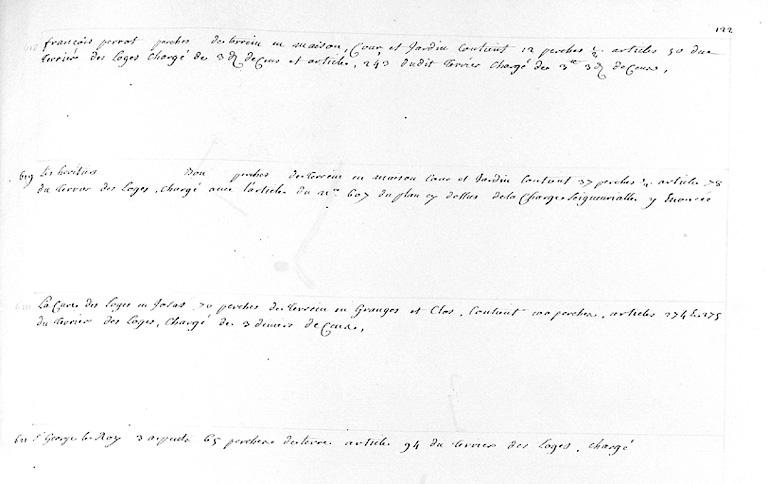 122
françois perrot perches de terrein en maison, Cour et Jardin Contient 12 perches ½ articles 50 du
terrier des Loges Chargé de 3 d. de Cens et article 243 dudit terrier Chargé de 3 d. de Cens,
619 Les héritiers Bou perches de terrein en maison Cour et Jardin Contient 37 perches ½ article 78
du terrier des Loges, chargé avec l'article du n.o 607 du plan cy dessus de la Charge Seigneurialle y Enoncée
La Cure des Loges en Josas 70 perches de terrein en Granges et Clos, Contient 100 perches, articles 274 & 275
du terrier des Loges, Chargé de 3 deniers de Cens,
S. George le Roy 3 arpents 65 perches de terre article 94 du terrier des Loges, chargé